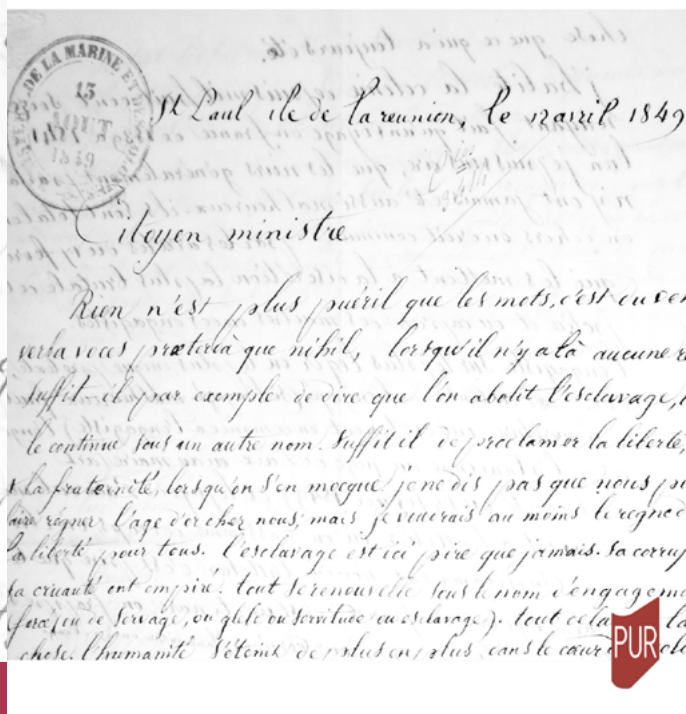 DE LA MARINE ET
13
AOUT
1849
St Paul ile de la reunion, le 12 avril 1849
Citoyen ministre
Rien n'est plus puéril que les mots, c'est
verba voces prætereà que nihil, lorsqu'il n'y a là aucune
suffit il par exemple de dire que l'on abolit l'esclavage,
le continue sous un autre nom. suffit il de proclamer la liberté,
la fraternité, lorsqu'on s'en mocque je ne dis pas que nous
faire régner l'age d'or chez nous; mais je voudrais au moins le regne d
la liberté pour tous. l'esclavage est ici pire que jamais. sa
sa cruauté ont empiré. tout se renouvelle sous le nom d'engageme
ou de servage, ou glèbe ou servitude ou esclavage). tout cela la
chose. l'humanité s'éteint de plus en plus dans le cœur
PUR